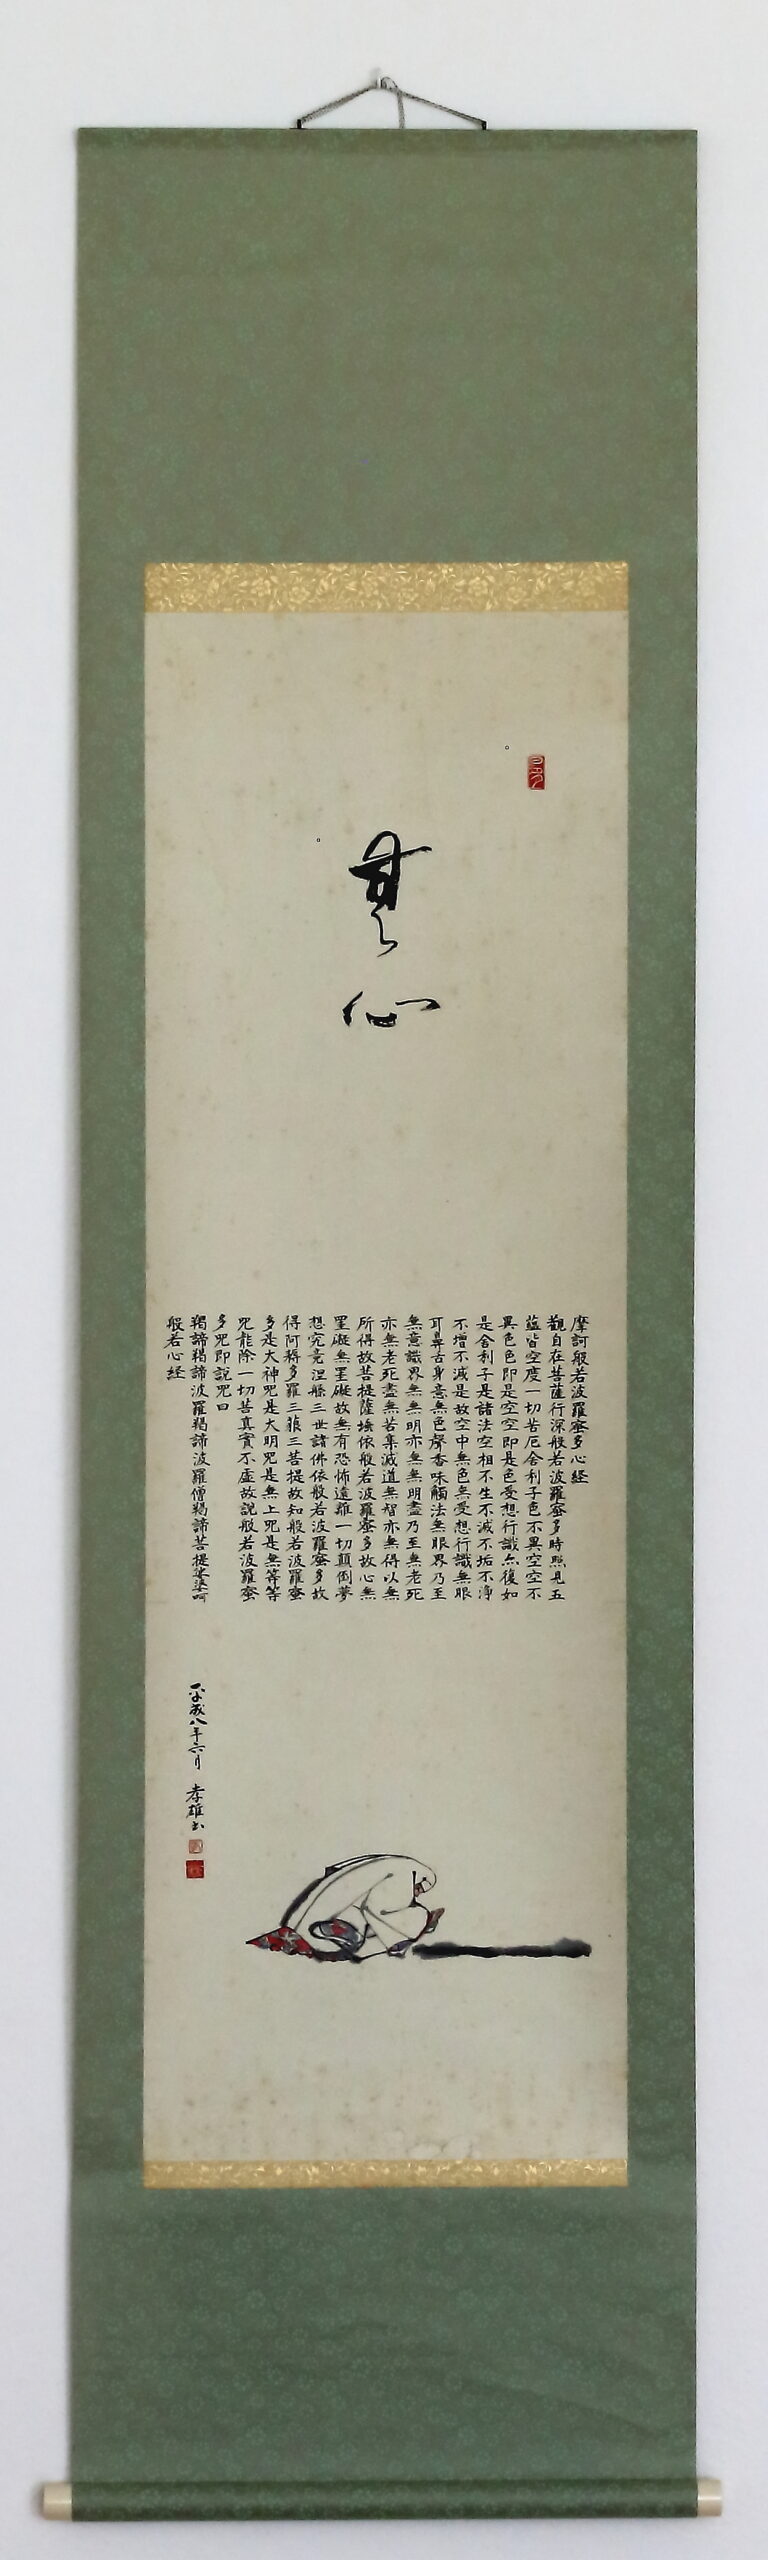 無心
摩訶般若波羅蜜多心経
觀自在菩薩行深般若波羅蜜多時照見五
蘊皆空度一切苦厄舍利子色不異空空不
異色色即是空空即是色受想行識亦復如
是舍利子是諸法空相不生不滅不垢不浄
不增不減是故空中無色無受想行識無眼
耳鼻舌身意無色聲香味觸法無眼界乃至
無意識界無無明亦無無明盡乃至無老死
亦無老死盡無苦集滅道無智亦無得以無
所得故菩提薩埵依般若波羅蜜多故心無
罣礙無罣礙故無有恐怖遠離一切顛倒夢
想究竟涅槃三世諸佛依般若波羅蜜多故
得阿耨多羅三藐三菩提故知般若波羅蜜
多是大神咒是大明咒是無上咒是無等等
咒能除一切苦真實不虛故說般若波羅蜜
多咒即說咒曰
羯諦羯諦波羅羯諦波羅僧羯諦菩提娑婆呵
般若心経
平成八年六月 孝雄書